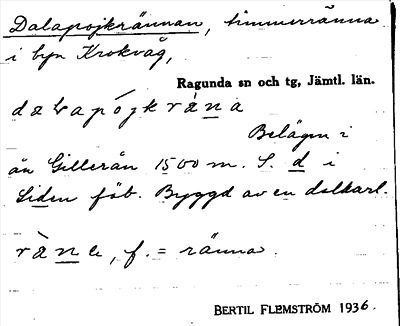 Dalapojkrännan, timmerränna
i byn Krokvåg,
Ragunda sn och tg, Jämtl. län.
dalapójkrὰna
Belägen i
ån Gillerån 1500 m. S. d i
Siden fäb. Byggd av en dalkarl.
rὰne, f. = ränna.
BERTIL FLEMSTRÖM 1936.